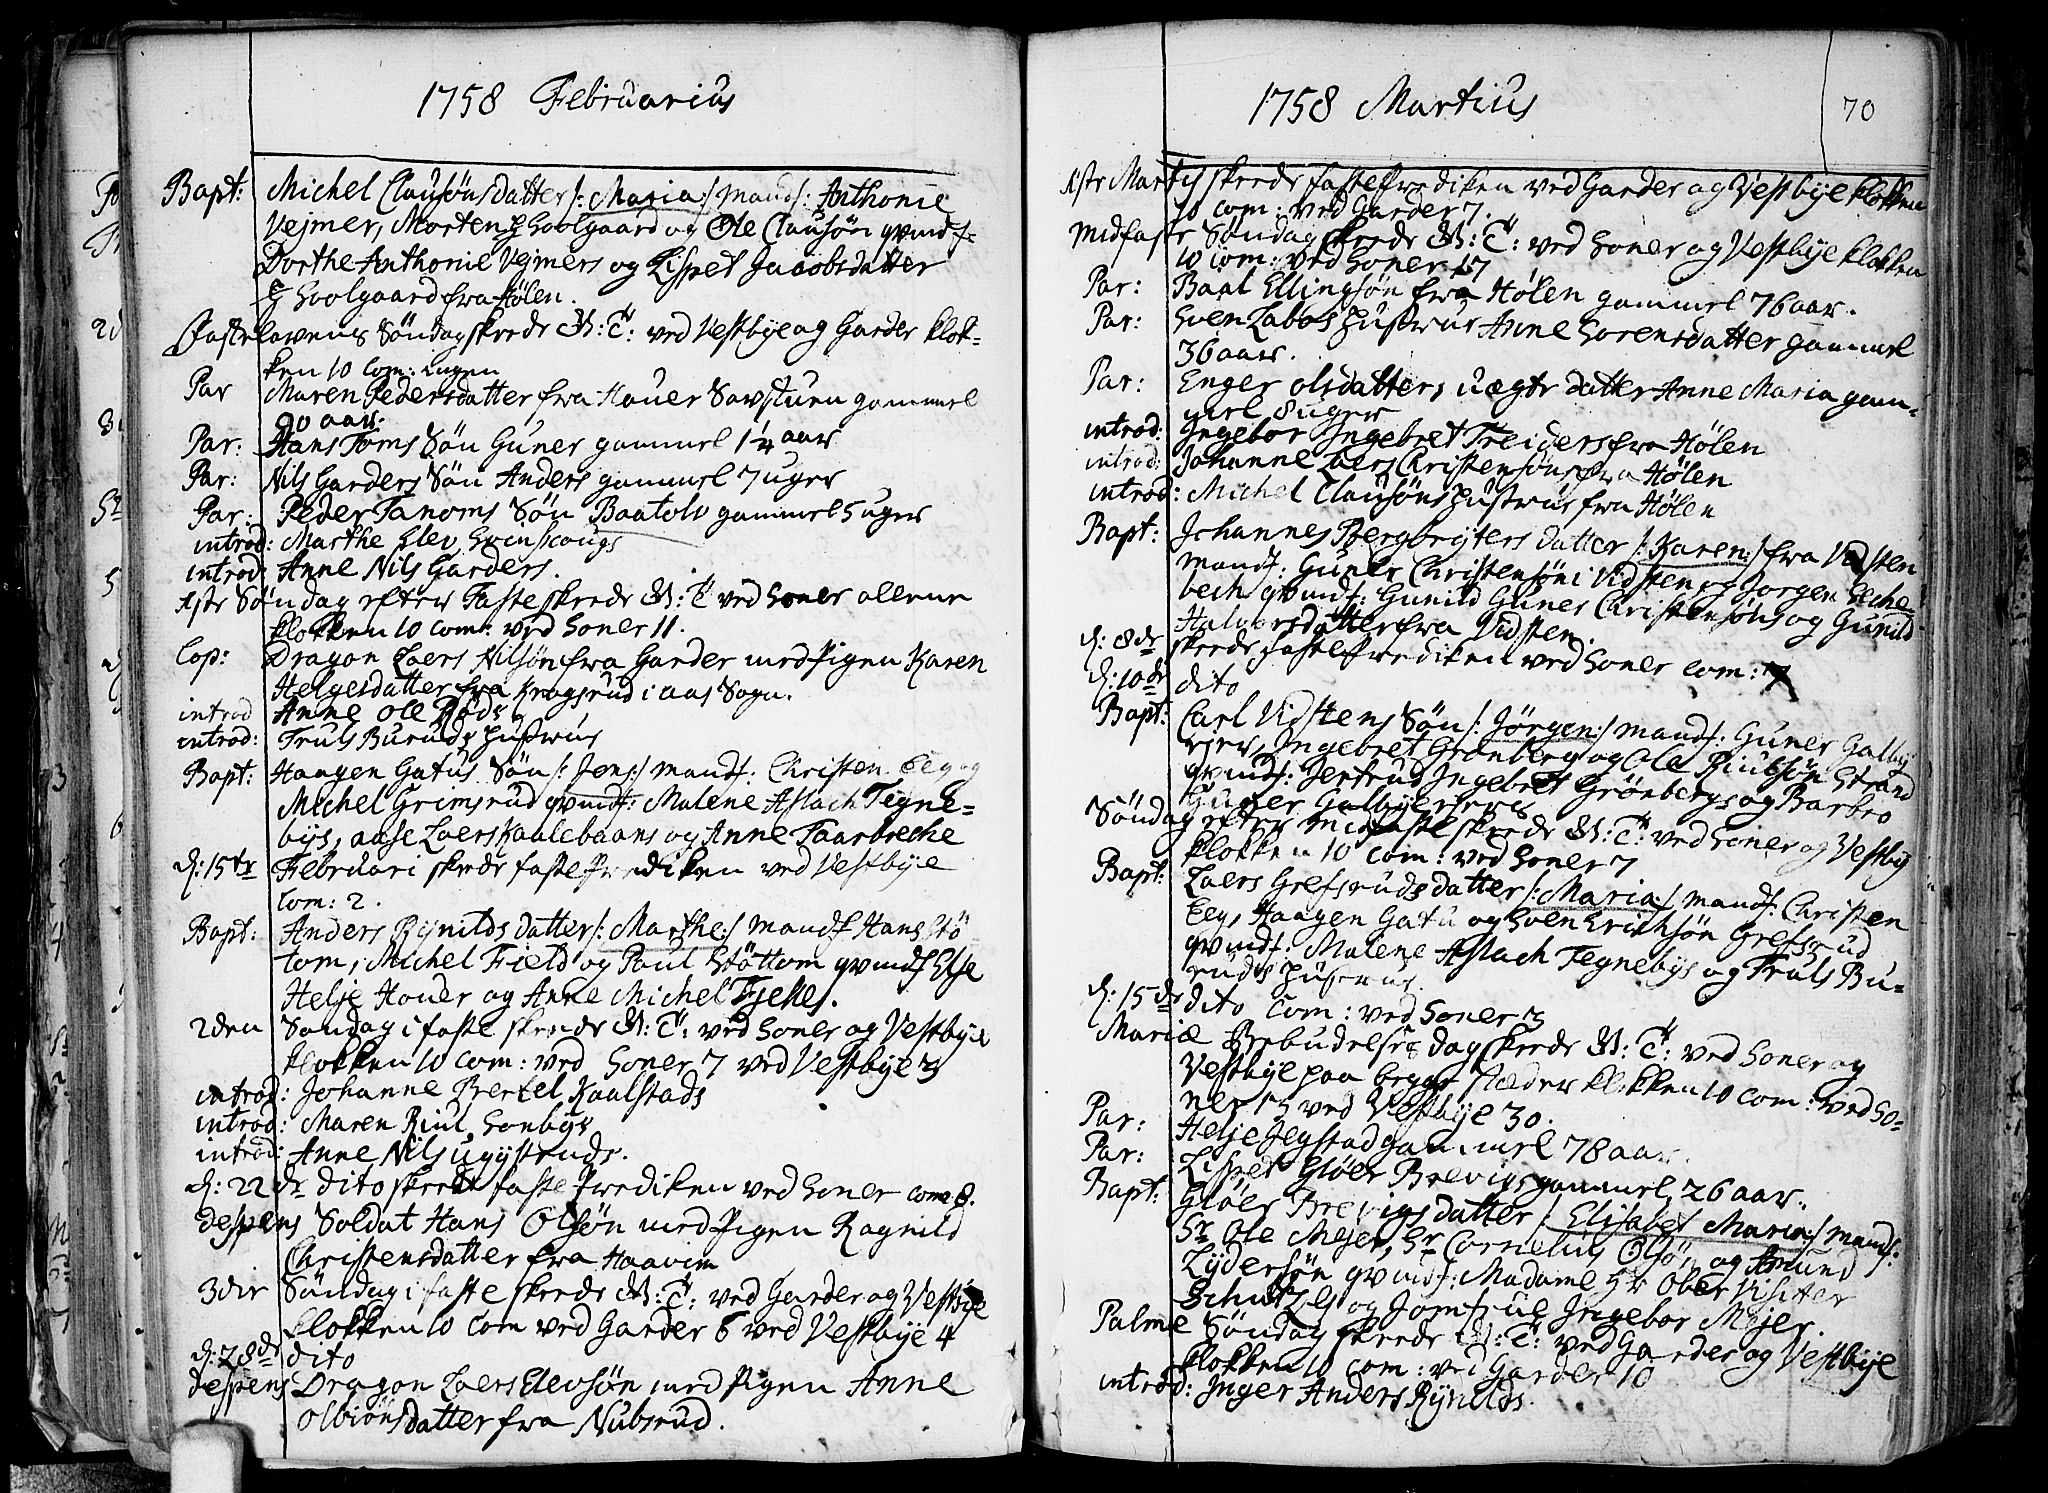 1758 Februarius
Bapt: Michel Clausøns datter /: Maria :/ mand: Anthonie
Vejmer, Morten Hoolgaard og Ole Clausøn qvindf:
Dorthe Anthonie Vejmers og Lisped Jacobsdatter
Hoolgaard fra Hølen.
Fastelavens Søndag skeede G: T: ved Vestbye og Garder klok-
ken 10 Com: ingen
Par Maren Pedersdatter fra Hauer Savstuen gammel
90 aar.
Par: Hans Toms Søn Guner gammel 1¼ aar
Par: Nils Garders Søn Anders gammel 7 uger
Par: Peder Tanoms Søn Baatolv gammel 5 uger
introd: Marthe Elev Svinscougs
introd Anne Nils Garders.
1ste Søndag efter Faste skeede G: T ved Soner allene
klokken 10 Com: ved Soner 11.
Cop: Dragon Laers Nilsøn fra Garder med Pigen Karen
Helgesdatter fra Kragsrud i Aas Sogn.
introd Anne Ole Røds
introd: Truls Buruds Hustrue
Bapt: Haagen Gatus Søn /: Jens :/ mandf: Christen Eeg og
Michel Grimsrud qvindf: Malene Aslach Tegne-
bys, Aase Laers Kaalebaans og Anne Taarbeche
d: 15de Februari skeede faste Prediken ved Vestbye
Com: 2.
Bapt: Anders Rynilds datter /: Marthe :/ mandf Hans Stø-
tom, Michel Field og Paul Støttom qvindf Else
Helje Houer og Anne Michel Fjelles.
2den Søndag i faste skeede G: T: ved Soner og Vestbye
klokken 10 Com: ved Soner 7 ved Vestbye 3
introd: Johanne Bertel Kaalstads
introd: Maren Riul Sonbys
introd: Anne Nils ugystruds.
d: 22de dito skeede faste Prediken ved Soner Com 8.
despens Soldat Hans Olsøn med Pigen Ragnild
Christensdatter fra Haavim
3die Søndag i faste skeede G: T: ved Garder og Vestbye
klokken 10 Com ved Garder 6 ved Vestbye 4
d: 28de dito
despens Dragon Laers Elevsøn med Pigen Anne
Olbiønsdatter fra Nubsrud.
1758 Martius
70
1ste Martii skeede faste Prediken ved Garder og Vestbye klokken
10 Com: ved Garder 7.
Midfaste Søndag skeede G: T: ved Soner og Vestbye klokken
10 Com: ved Soner 17
Par: Baal Ellingsøn fra Hølen gammel 76 aar.
Par: Sven Labos Hustrue Anne Sorensdatter gammel
36 aar.
Par: Enger olsdatters uægte datter Anne Maria gam-
mel 8 uger
introd: Ingebor Ingebret Treiders fra Hølen
introd: Johanne Laers Christensøns fra Hølen
introd: Michel Clausøns Hustrue fra Hølen
Bapt: Johannes Bergbryters datter /: Karen :/ fra Vidsten
mandf: Guner Christensøn i Vidsten og Jorgen Eche-
bech qvindf: Gunild Guner Christensøns og Gunild
Halvorsdatter fra Vidsten.
d: 8de skeede faste Prediken ved Soner Com: 7
d: 10de dito
Bapt: Carl Vidstens Søn /: Jørgen :/ mandf: Guner Galby
eier, Ingebret Grønberg og Ole Riulsøn Strand
qvindf: Jertrud Ingebret Grønbergs og Barbro
Guner Galbyeiers
Søndag efter Midfaste skeede G: T: ved Soner og Vestby
klokken 10 Com: ved Soner 7
Bapt: Laers Grefsruds datter /: Maria :/ mandf: Christen
Eeg, Haagen Gatu og Sven Erichsøn Grefsrud
qvindf: Malene Aslach Tegnebys og Truls Bu-
ruds Hustrue.
d: 15de dito Com: ved Soner 3
Mariæ Bebudelses dag skeede G: T: ved Soner og
Vestbye paa begge stæder klokken 10 Com: ved So-
ner 15 ved Vestbye 30.
Par: Helje Jegstad gammel 78 aar.
Par: Lisped Gløer Brevigs gammel 26 aar.
Bapt: Gløer Brevigs datter /: Elisabet Maria :/ mandf:
Sr Ole Mejer, Sr Cornelius Olsøn og Amund
Lydersøn qvindf: Madame Sr Ober Visiter
Schultz og Jomfrue Ingebor Mejer.
Palme Søndag skeede G: T: ved Garder og Vestbye
klokken 10 Com: ved Garder 10
introd: Inger Anders Rynilds.